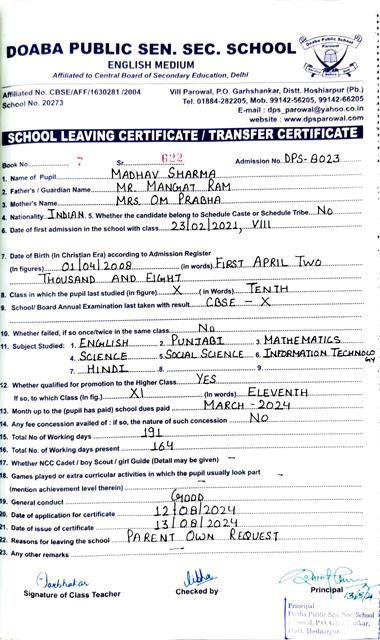 DOABA PUBLIC SEN. SEC. SCHOOL
ENGLISH MEDIUM
Affiliated to Central Board of Secondary Education, Delhi
Doaba Public School
Parowal
Affiliated No. CBSE/AFF/1630281 /2004
School No. 20273
Vill Parowal, P.O. Garhshankar, Distt. Hoshiarpur (Pb.)
Tel. 01884-282205, Mob. 99142-56205, 99142-66205
E-mail : dps_parowal@yahoo.co.in
website : www.dpsparowal.com
SCHOOL LEAVING CERTIFICATE / TRANSFER CERTIFICATE
Book No. 7 Sr. 622 Admission No. DPS-8023
1. Name of Pupil MADHAV SHARMA
2. Father's / Guardian Name MR. MANGAT RAM
3. Mother's Name MRS. OM PRABHA
4. Nationality INDIAN 5. Whether the candidate belong to Schedule Caste or Schedule Tribe No
6. Date of first admission in the school with class 23/02/2021, VIII
7. Date of Birth (In Christian Era) according to Admission Register
(In figures) 01/04/2008 (in words) FIRST APRIL TWO
THOUSAND AND EIGHT
8. Class in which the pupil last studied (in figure) X ( in Words) TENTH
9. School/ Board Annual Examination last taken with result CBSE - X
10. Whether failed, if so once/twice in the same class No
11. Subject Studied: 1. ENGLISH 2. PUNJABI 3. MATHEMATICS
4. SCIENCE 5. SOCIAL SCIENCE 6. INFORMATION TECHNOLO
GY
7. HINDI 8. 9.
12. Whether qualified for promotion to the Higher Class YES
If so, to which Class (in fig.) XI (In words) ELEVENTH
13. Month up to the (pupil has paid) school dues paid MARCH-2024
14. Any fee concession availed of : if so, the nature of such concession No
15. Total No of Working days 191
16. Total No. of Working days present 164
17. Whether NCC Cadet / boy Scout / girl Guide (Detail may be given) -
18. Games played or extra curricular activities in which the pupil usually look part
(mention achievement level therein) -
19. General conduct GOOD
20. Date of application for certificate 12/08/2024
21. Date of issue of certificate 13/08/2024
22. Reasons for leaving the school PARENT OWN REQUEST
23. Any other remarks
Signature of Class Teacher
Checked by
Principal
Principal
Doaba Public Sen. Sec. School
Parowal, P.O. Garhshankar,
Distt. Hoshiarpur